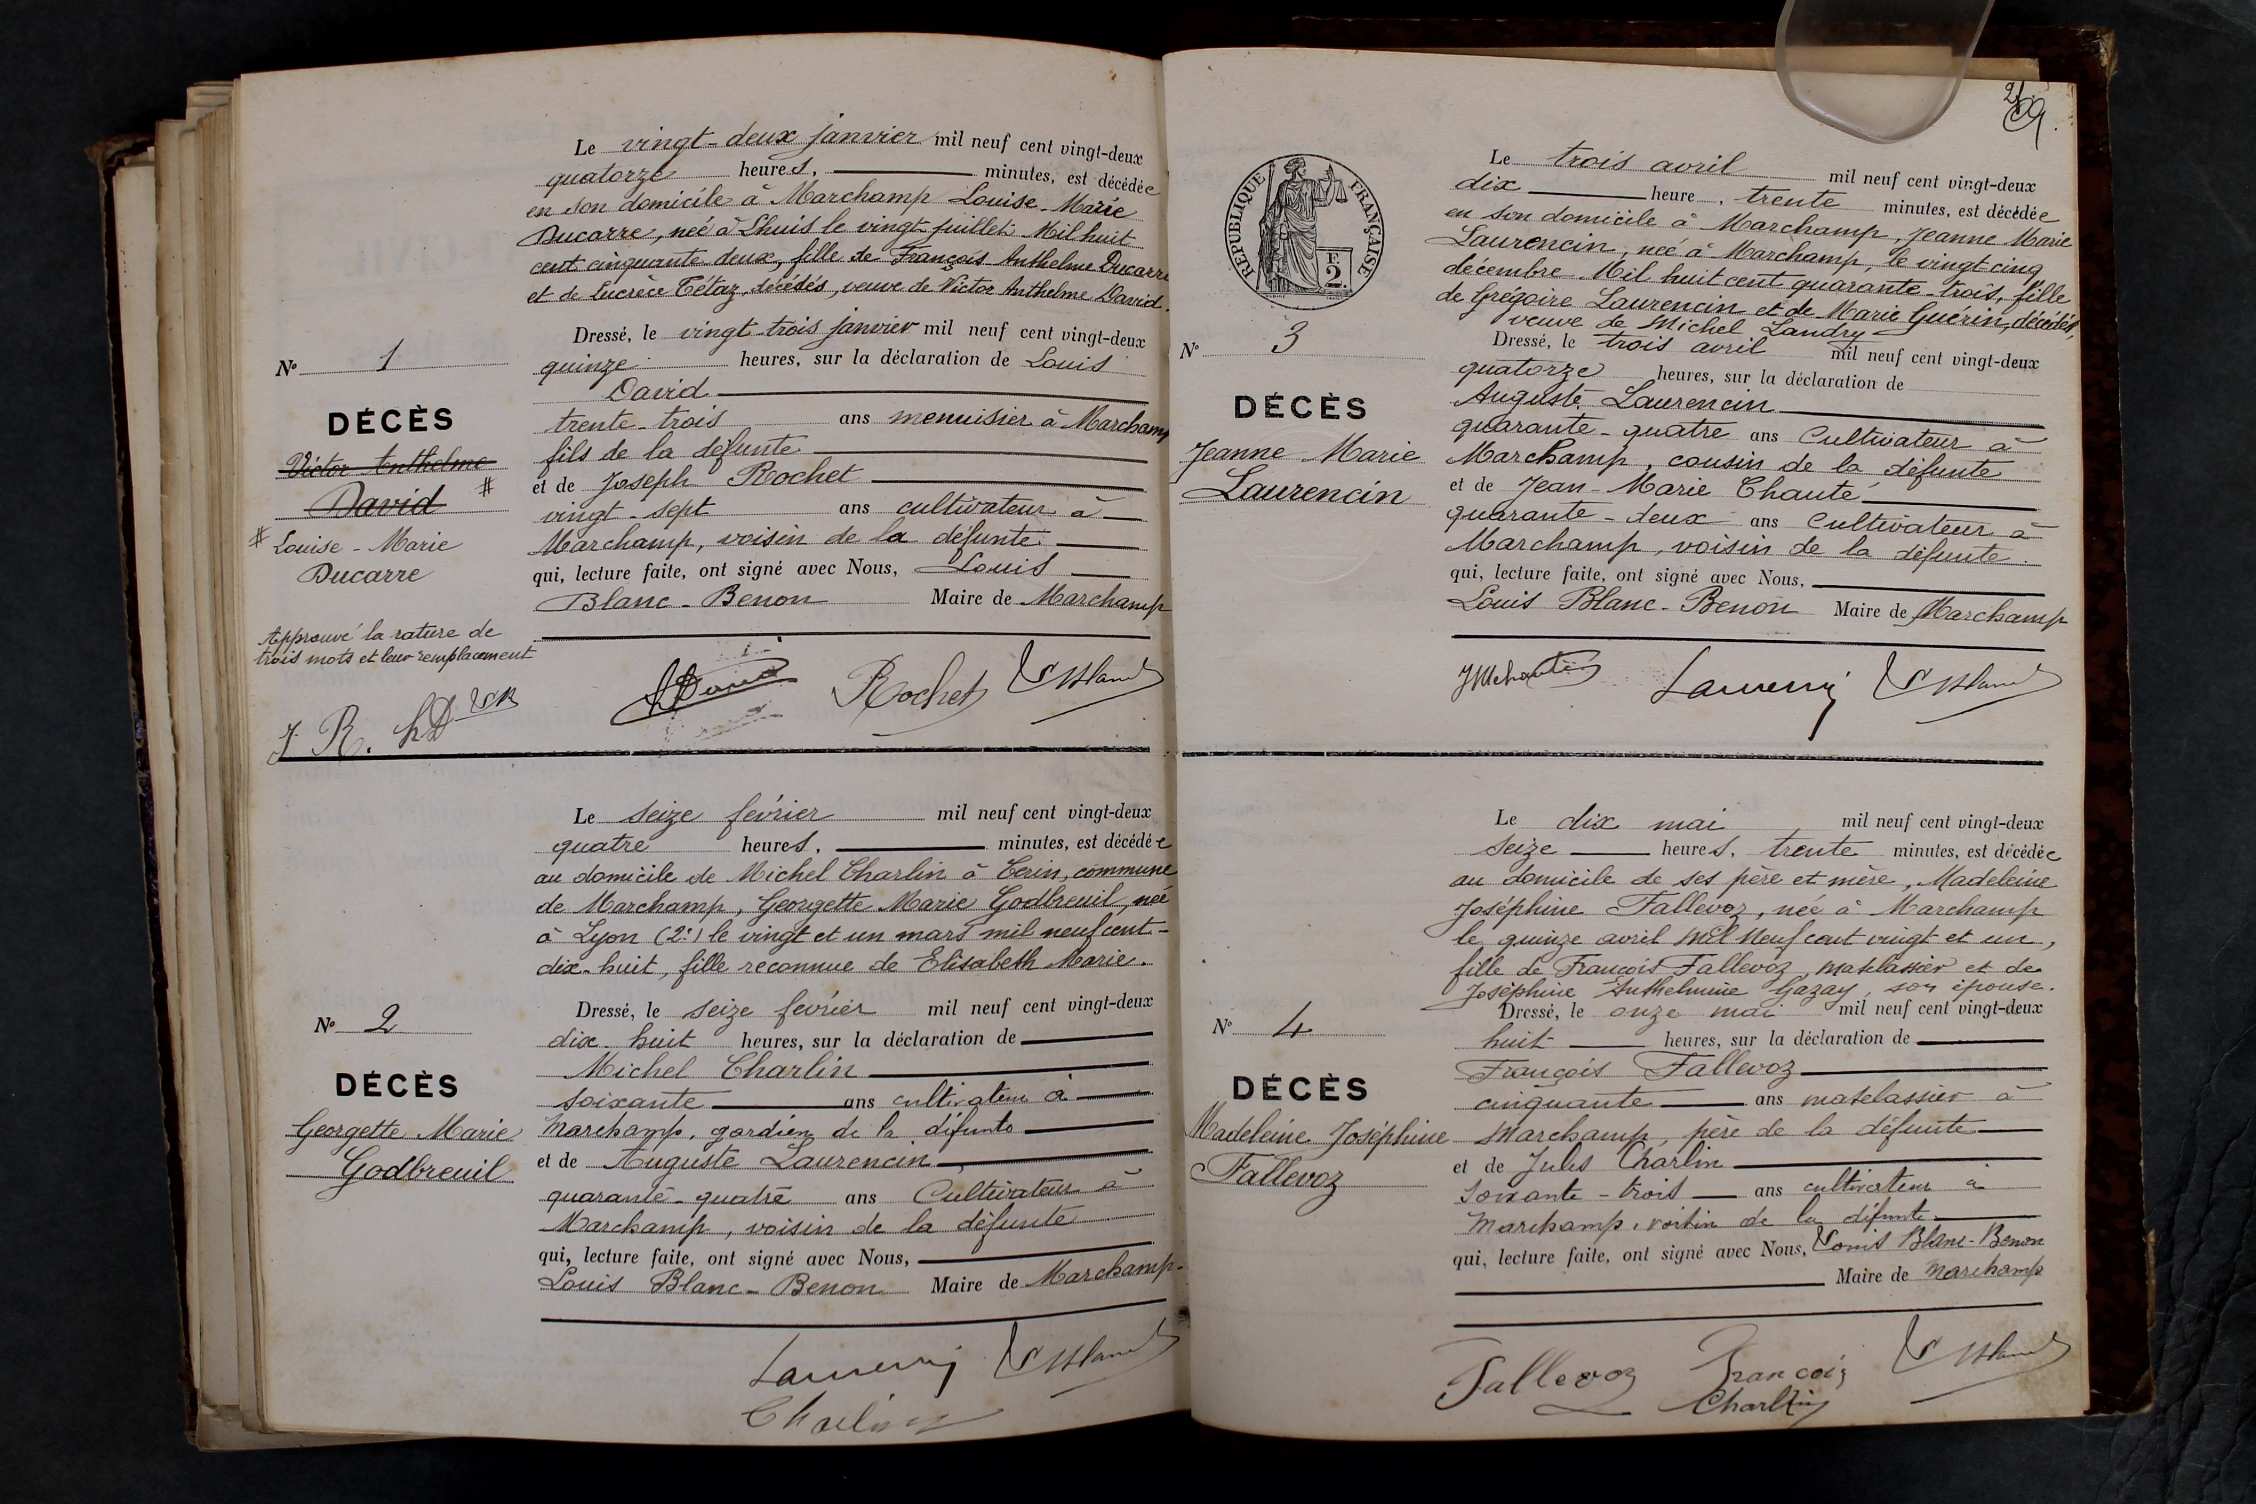 Le vingt-deux janvier mil neuf cent vingt-deux
quatorze heures, minutes, est décédée
en son domicile à Marchamp Louise-Marie
Ducarre, née à Lhuis le vingt juillet Mil huit
cent cinquante-deux, fille de François Anthelme Ducarre
et de Lucrèce Tétaz, décédés, veuve de Victor Anthelme David.
Dressé, le vingt-trois janvier mil neuf cent vingt-deux
quinze heures, sur la déclaration de Louis
David
trente-trois ans menuisier à Marchamp
fils de la défunte
et de Joseph Rochet
vingt-sept ans cultivateur à
Marchamp, voisin de la défunte
qui, lecture faite, ont signé avec Nous, Louis
Blanc-Benon Maire de Marchamp
N° 1
DÉCÈS
Victor Anthelme
David #
# Louise-Marie
Ducarre
Approuvé la rature de
trois mots et leur remplacement
J. R. LD
LDavid Rochet L Blanc
Le seize février mil neuf cent vingt-deux
quatre heures, minutes, est décédée
au domicile de Michel Charlin à Cerin, commune
de Marchamp, Georgette Marie Godbreuil, née
à Lyon (2e) le vingt et un mars mil neuf cent-
dix-huit, fille reconnue de Elisabeth Marie.
Dressé, le seize février mil neuf cent vingt-deux
dix-huit heures, sur la déclaration de
Michel Charlin
soixante ans cultivateur à
Marchamp, gardien de la défunte
et de Auguste Laurencin
quarante-quatre ans Cultivateur à
Marchamp, voisin de la défunte
qui, lecture faite, ont signé avec Nous,
Louis Blanc-Benon Maire de Marchamp
N° 2
DÉCÈS
Georgette Marie
Godbreuil
Laurencin L Blanc
Charlin
RÉPUBLIQUE FRANÇAISE
2
Le trois avril mil neuf cent vingt-deux
dix heure, trente minutes, est décédée
en son domicile à Marchamp, Jeanne Marie
Laurencin, née à Marchamp, le vingt cinq
décembre Mil huit cent quarante-trois, fille
de Grégoire Laurencin et de Marie Guérin, décédés,
veuve de Michel Landry
Dressé, le trois avril mil neuf cent vingt-deux
quatorze heures, sur la déclaration de
Auguste Laurencin
quarante-quatre ans Cultivateur à
Marchamp, cousin de la défunte
et de Jean-Marie Chanté
quarante-deux ans Cultivateur à
Marchamp, voisin de la défunte.
qui, lecture faite, ont signé avec Nous,
Louis Blanc-Benon Maire de Marchamp
N° 3
DÉCÈS
Jeanne Marie
Laurencin
Laurencin L Blanc
Le dix mai mil neuf cent vingt-deux
seize heures, trente minutes, est décédée
au domicile de ses père et mère, Madeleine
Joséphine Fallevoz, née à Marchamp
le quinze avril Mil Neuf cent vingt et un,
fille de François Fallevoz, matelassier et de
Joséphine Anthelmine Gazay, son épouse.
Dressé, le onze mai mil neuf cent vingt-deux
huit heures, sur la déclaration de
François Fallevoz
cinquante ans matelassier à
Marchamp, père de la défunte
et de Jules Charlin
soixante-trois ans cultivateur à
Marchamp, voisin de la défunte
qui, lecture faite, ont signé avec Nous, Louis Blanc-Benon
Maire de Marchamp
N° 4
DÉCÈS
Madeleine Joséphine
Fallevoz
Fallevoz François L Blanc
Charlin